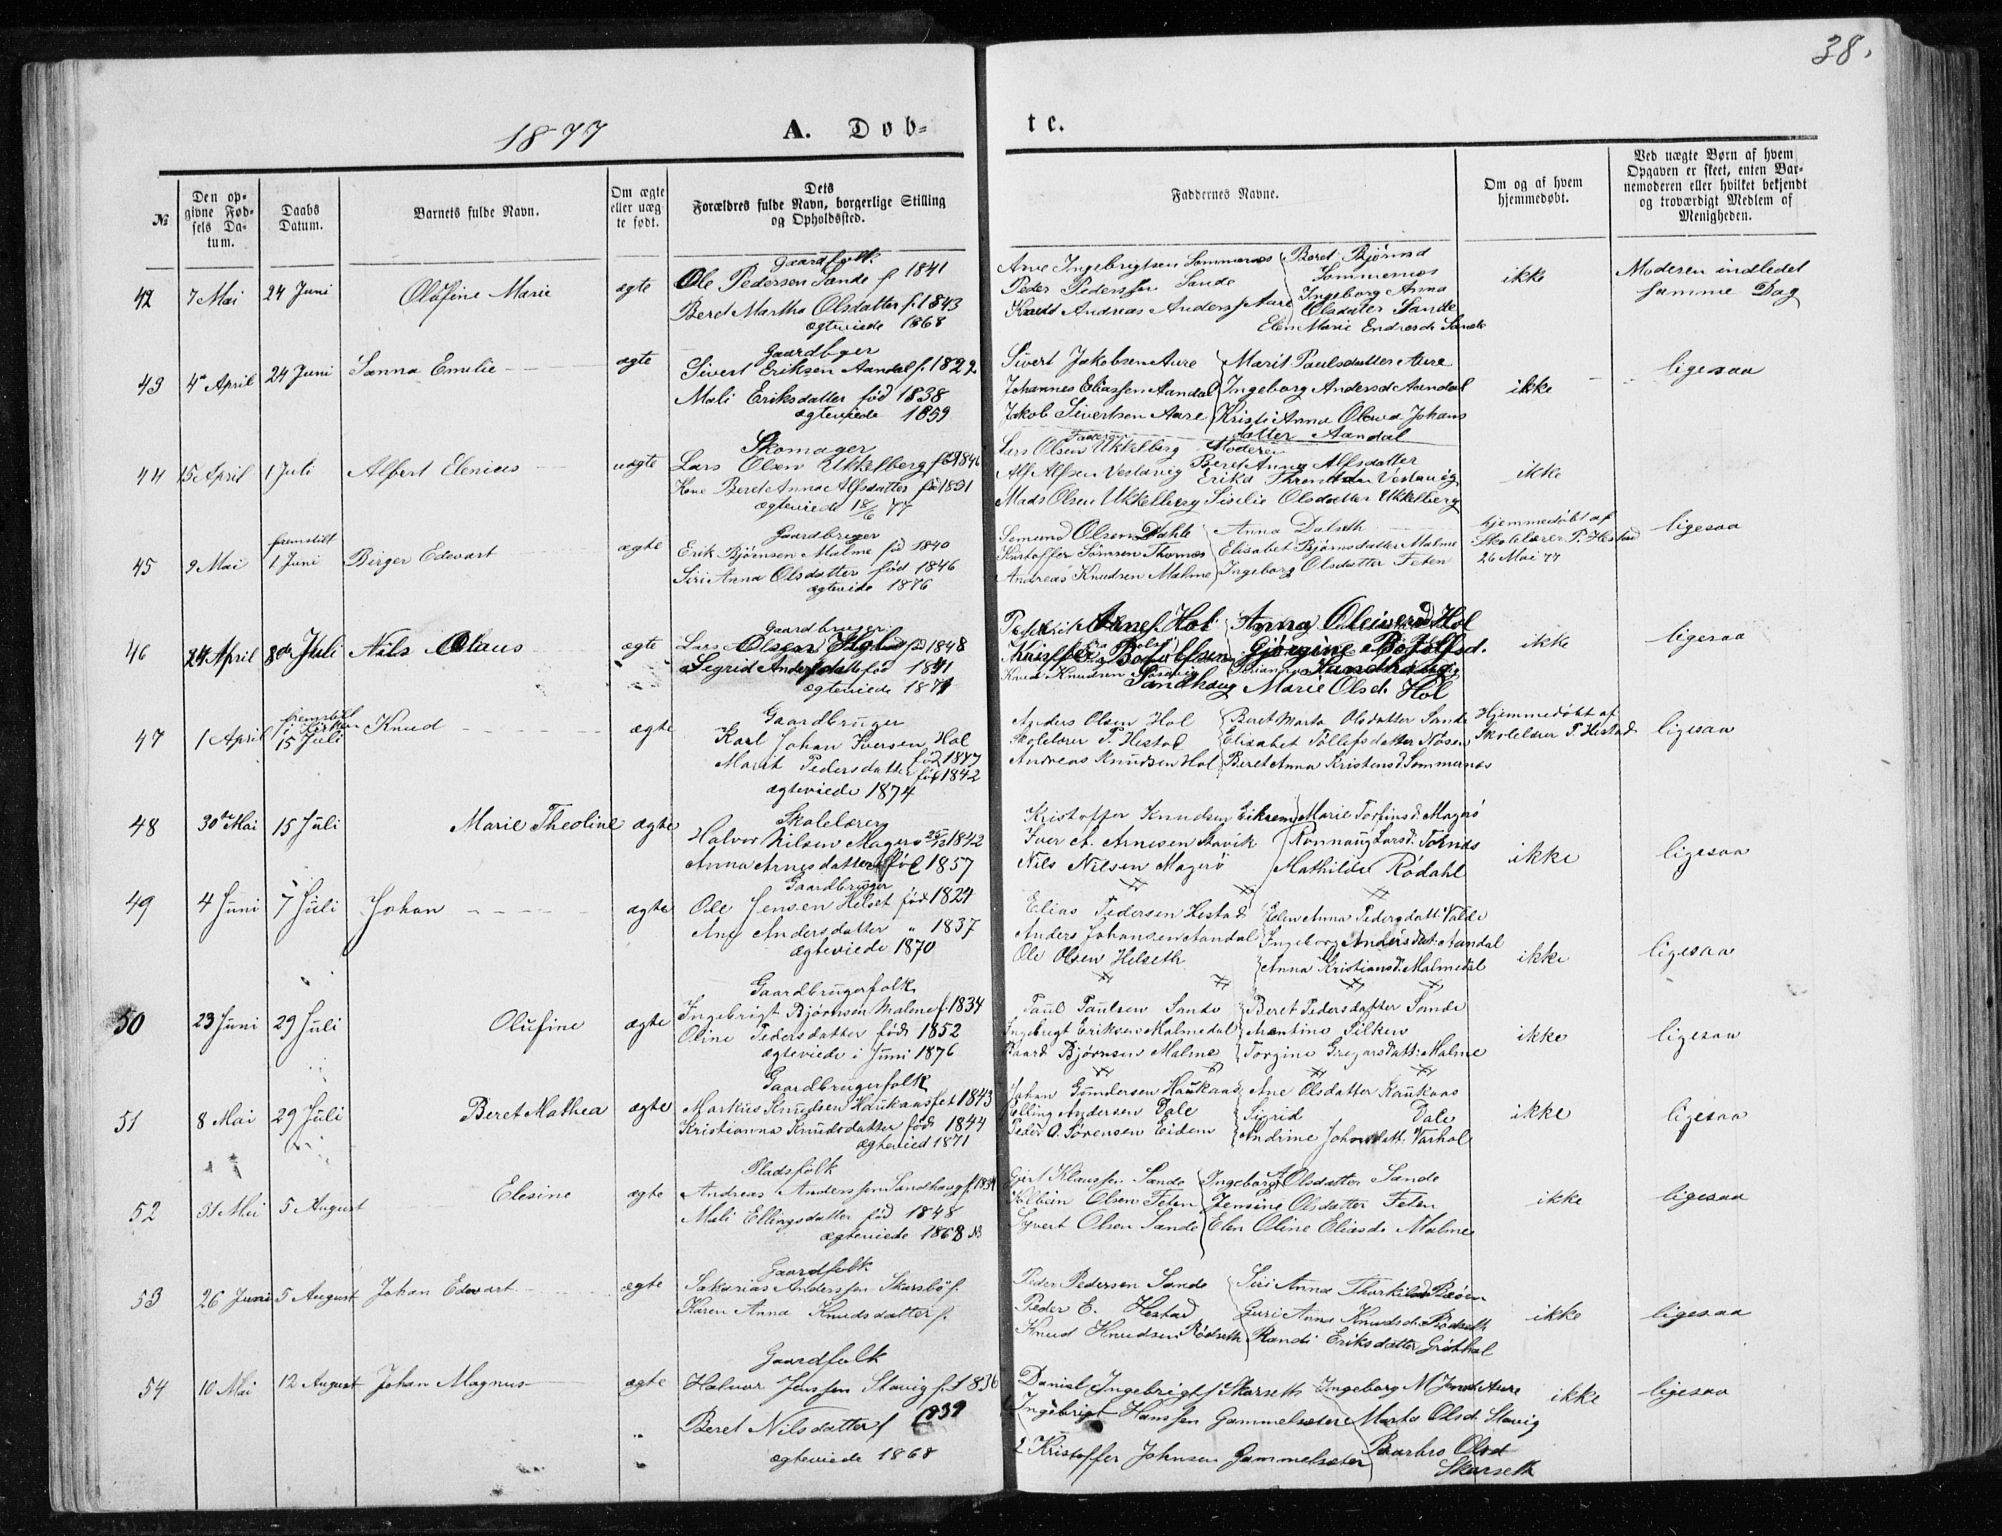 38.
1877
A. Dob=
te.
№
Den op-
givne Fød-
sels Da-
tum.
Daabs
Datum.
Barnets fulde Navn.
Om ægte
eller uæg
te født.
Dets
Forældres fulde Navn, borgerlige Stilling
og Opholdssted.
Faddernes Navne.
Om og af hvem
hjemmedøbt.
Ved uægte Børn af hvem
Opgaven er skeet, enten Bar-
nemoderen eller hvilket bekjendt
og troværdigt Medlem af
Menigheden.
42 7 Mai 24 Juni Olufine Marie ægte
Gaardfolk.
Ole Pedersen Sande f 1841
Beret Martha Olsdatter f. 1843
ægteviede 1868
Arne Ingebrigtsen Sommernes Beret Bjørnsd
Sommernes
Peder Pederssen Sande Ingeborg Anna
Knud Andreas Anderss Aare Olsdater Sande
Elen Marie Endresd Sande
ikke
Moderen indledet
samme Dag
43 4 April 24 Juni Sanna Emilie ægte
Gaardbger
Sivert Eriksen Aandal f. 1829
Mali Eriksdatter fød 1838
ægteviede 1859
Sivert Jakobsen Aure Marit Paulsdatter Aure
Johannes Eliassen Aandal Ingeborg Andersd Aandal
Jakob Sivertsen Aure Kristi Anna Olava Johans
datter Aandal
ikke
ligesaa
44 15 April 1 Juli Albert Elenius uægte
Skomager
Lars Olsen Ukkelberg fød 1846
Kone Beret Anna Alfsdatter fø 1851
ægteviede 18/6 77
Faderen Moderen
Lars Olsen Ukkelberg Beret Anna Alfsdatter
Alf Alfsen Vestavig Erika Vestavig
Mads Olsen Ukkelberg Siselie Olsdatter Ukkelberg
ikke
45 9 Mai fremstilt
1 Juni Birger Edevart ægte
Gaardbruger
Erik Bjørnsen Malme fød 1840
Siri Anna Olsdatter fød 1846
ægteviede 1876
Semund Olsen Dahle Anna Dalseth
Kristoffer Simsen Thornes Elisabet Bjørnsdatter Malme
Andreas Knudsen Malme Ingeborg Olsdatter Feten
hjemmedøbt af
Skolelærer P. Hestad
26 Mai 77
ligesaa
46 24 April 8de Juli Nils Olaus ægte
Gaardbruger
Lars Olsen Hol fød 1848
Sigrid Andersdatte fød 1841
ægteviede 1871
Arnes. Hol Anna Hol
Gjørgine
Knud Knudsen
Sandhaug Marie Olsd. Hol
ikke
ligesaa
47 1 April fremstilt
i Kirken
15 Juli Knud ægte
Gaardbruger
Karl Johan Iversen Hol
fød 1847
Marit Pedersdatter fød 1842
ægteviede 1874
Anders Olsen Hol Beret Marta Olsdatter Sande
Skolelærer P. Hestad Elisabet Tollefsdatter Nøsen
Andreas Knudsen Hol Beret Anna Kristensd Sommernes
Hjemmedøbt af
Skolelærer P. Hestad
ligesaa
48 30te Mai 15 Juli Marie Theoline ægte
Skolelærer
Halvor Nilsen Magerø 1842
Anna Arnesdatter fød 1857
Kristoffer Knudsen Eikrem Marie Torfins d. Magerø
Iver A. Arnesen Stavik Rønnaug Larsd. Tornæs
Nils Nilsen Magerø Mathilde Rødahl
ikke
ligesaa
49 4 Juni 7 Juli Johan ægte
Gaardbruger
Ole Jensen Helset fød 1824
Ane Andersdatter " 1837
ægteviede 1870
Elias Pedersen Hestad Elen Anna Pedersdatt. Valde
Anders Johansen Aandal Ingeborg Andersdat. Aandal
Ole Olsen Helseth Anna Kristiansd. Malmedal
ikke
ligesaa
50 23 Juni 29 Juli Olufine ægte
Gaardbrugerfolk
Ingebrigt Bjørnsen Malme f. 1834
Oline Pedersdatter fød 1852
ægteviede i Juni 1876
Paul Paulsen Sande Beret Pedersdatter Sande
Ingebrigt Eriksen Malmedal Arentine Silken
Baard Bjørnsen Malme Torgine Gregarsdatt. Malme
ikke
ligesaa
51 8 Mai 29 Juli Beret Mathea ægte
Gaardbrugerfolk
Markus Knudsen Haukaas fød 1843
Kristianna Knudsdatter fød 1844
ægteviede 1871
Johan Gundersen Haukaas Ane Olsdatter Haukaas
Elling Andersen Dale Sigrid Dale
Peder O. Sørensen Eidem Andrine Johansdatt. Varhol
ikke
ligesaa
52 31 Mai 5 August Elesine ægte
Pladsfolk
Andreas Anderssen Sandhaug f. 1834
Mali Ellingsdatter fød 1848
ægteviede 1868
Gjert Klaussen Sande Ingeborg A Olsdatter Sande
Kolbein Olsen Feten Jensine Olsdatter Feten
Syvert Olsen Sande Elen Oline Eliasd. Malme
ikke
ligesaa
53 26 Juni 5 August Johan Edvart ægte
Gaardfolk
Sakarias Anderssen Skarsbø f.
Karen Anna Knudsdatter f.
Peder Pedersen Sande Siri Anna Thorkilsd Røen
Peder E. Hestad Guri Anna Knudsd. Rødseth
Knud Knudsen Rødseth Randi Eriksdatter Grøthal
ikke
ligesaa
54 10 Mai 12 August Johan Magnus ægte
Gaardfolk
Halvor Jenssen Stavig f. 1836
Beret Nilsdatter f 1839
ægteviede 1868
Daniel Ingebrigts Skarseth Ingeborg M Jensd Aure
Ingebrigt Hanssen Gammelsæter Marta Olsd. Stavig
Kristoffer Johnsen Gammelsæter Baarbro Olsd
Skarseth
ikke
ligesaa